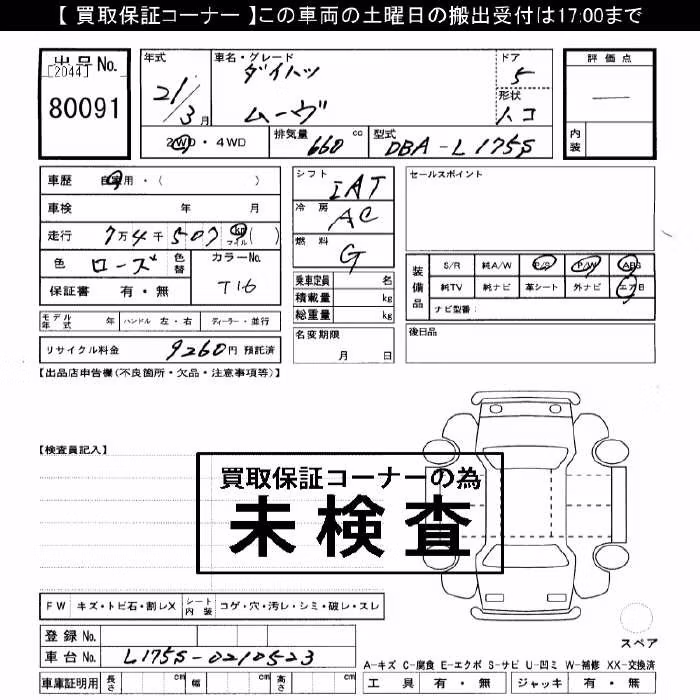 【 買取保証コーナー 】この車両の土曜日の搬出受付は17:00まで
出品No.
[2044]
80091
年式
21/3月
車名・グレード
ダイハツ
ムーヴ
ドア
5
形状
ハコ
評価点
—
内装
2WD・4WD
排気量 660 cc
型式 DBA-L175S
車歴 自家用・( )
車検 年 月
走行 7万4千507 km マイル ( )
色 ローズ 色替
カラーNo.
T16
保証書 有・無
シフト IAT
冷房 AC
燃料 G
乗車定員 名
積載量 kg
総重量 kg
名変期限
月 日
セールスポイント
装備品
S/R 純A/W P/S P/W ABS
純TV 純ナビ 革シート 外ナビ エアB
ナビ型番:
後日品
モデル年式 年 ハンドル 左・右 ディーラー・並行
リサイクル料金 9260円 預託済
【出品店申告欄(不良箇所・欠品・注意事項等)】
【検査員記入】
買取保証コーナーの為
未検査
FW キズ・トビ石・割レX シート内装 コゲ・穴・汚レ・シミ・破レ・スレ
登録No.
車台No. L175S-0210523
車庫証明用 長さ cm 幅 cm 高さ cm
スペア
A-キズ C-腐食 E-エクボ S-サビ U-凹ミ W-補修 XX-交換済
工具 有・無 ジャッキ 有・無